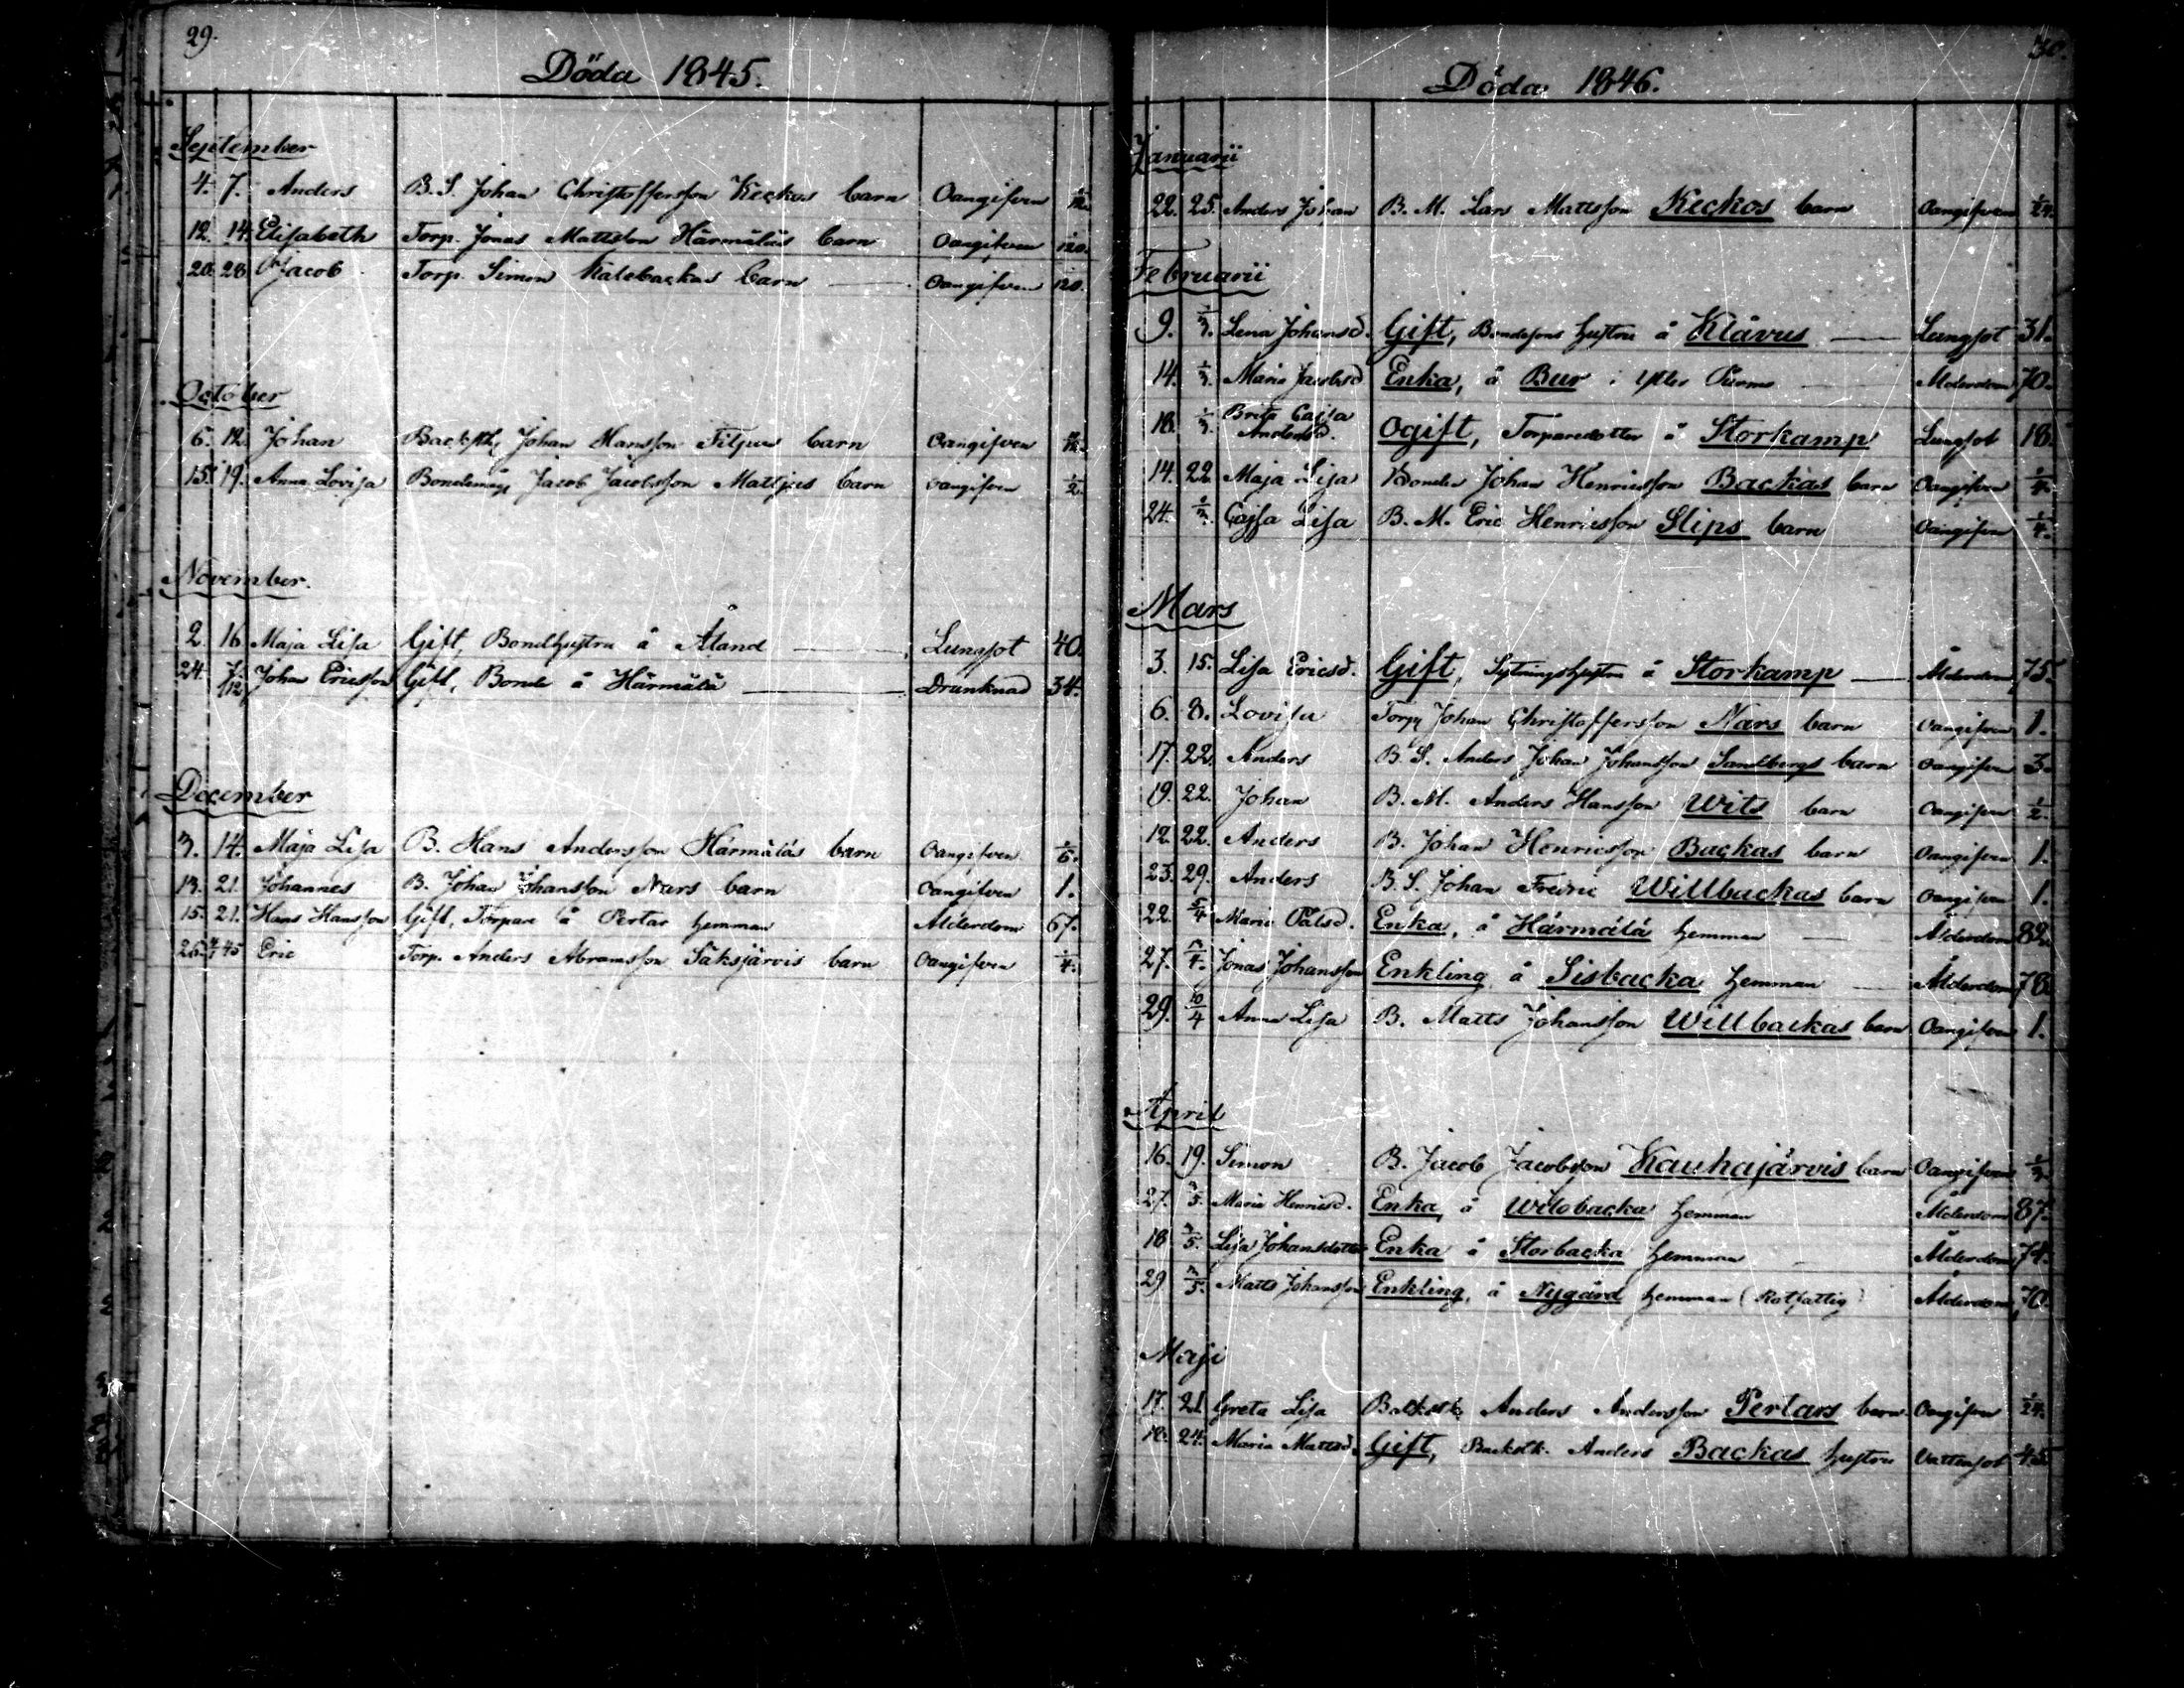 29.
Döda 1845.
September
4. 7. Anders B. S. Johan Christoffersson Keckos barn Oangifven 1/12.
12. 14. Elisabeth Torp. Jonas Mattsson Härmäläs barn Oangifven 1/120.
20. 28. Jacob Torp. Simon barn Oangifven 1/120.
October
6. 12. Johan Johan Hansson Filpus barn Oangifven
15. 19. Anna Lovisa Bondemåg Jacob Jacobsson barn Oangifven 1/2.
November.
2 16 Maja Lisa Gift, Bondhustru å Åland Lungsot 40.
24. 7/12 Johan Ericsson Gift, Bonde å Härmälä Drunknad 34.
December
3. 14. Maja Lisa B. Hans Andersson Härmäläs barn Oangifven 1/6.
13. 21. Johannes B. Johan Johansson Nars barn Oangifven 1.
15. 21. Hans Hansson Gift, Torpare å Pertar hemman Ålderdom 67.
26. Eric Torp. Anders Abramsson Säksjärvis barn Oangifven 1/4.
30.
Döda 1846.
Januarii
22. 25. Anders Johan B. M. Lars Mattsson Keckos barn Oangifven 1/24.
Februarii
9. 1/3. Lena Johansd. Gift, Bondesons hustru å Klåvus Lungsot 31.
14. 1/3. Maria Jacobsd Enka, å Bur i Ytter Purmo Ålderdom 70.
18. 1/3. Brita Cajsa Andersd. Ogift, Torparedotter å Storkamp Lungsot 18.
14. 22. Maja Lisa Bonden Johan Henricsson Backas barn Oangifven 1/4.
24. Cajsa Lisa B. M. Eric Henricsson Slips barn Oangifven 1/4.
Mars
3. 15. Lisa Ericsd. Gift, Sytningshustru å Storkamp Ålderdom 75.
6. 8. Lovisa Torp. Johan Christoffersson Nars barn Oangifven 1.
17. 22. Anders B. S. Anders Johan Johansson Sandbergs barn Oangifven 3.
19. 22. Johan B. M. Anders Hansson Wits barn Oangifven 1/2.
12. 22. Anders B. Johan Henricsson Backas barn Oangifven 1.
23. 29. Anders B. S. Johan Fredric Willbackas barn Oangifven 1.
22. 5/4 Maria Pålsd. Enka, å Härmälä hemman Ålderdom 82.
27. Jonas Johansson Enkling å Sisbacka hemman Ålderdom 78.
29. 10/4 Anna Lisa B. Matts Johansson Willbackas barn Oangifven 1.
April
16. 19. Simon B. Jacob Jacobsson Kauhajärvis barn Oangifven 1/3.
27. 3/5. Maria Henricsd. Enka, å hemman Ålderdom 87.
18 3/5. Lisa Johansdotter Enka å Storbacka hemman Ålderdom 74.
29 3/5. Matts Johansson Enkling, å Nygård hemman (Rotfattig) Ålderdom 70.
Maji
17. 21. Greta Lisa Backstk Anders Andersson Pertars barn Oangifven 1/24.
18. 24. Maria Mattsd. Gift, Backstk. Anders Backas hustru Vattensot 45